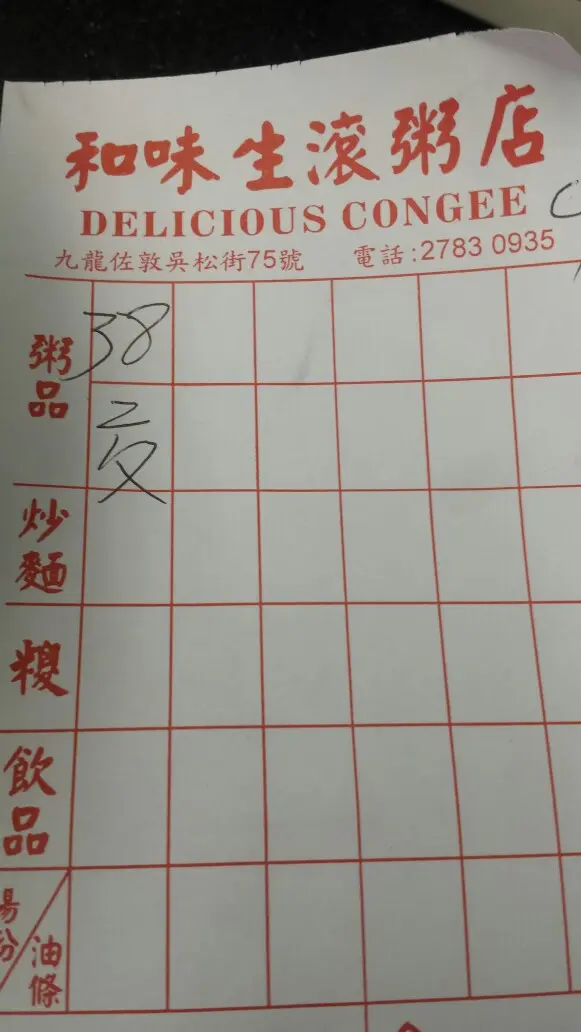 和味生滾粥店
DELICIOUS CONGEE
九龍佐敦吳松街75號 電話:2783 0935
粥品
38
炒麵
糉
飲品
腸粉/油條